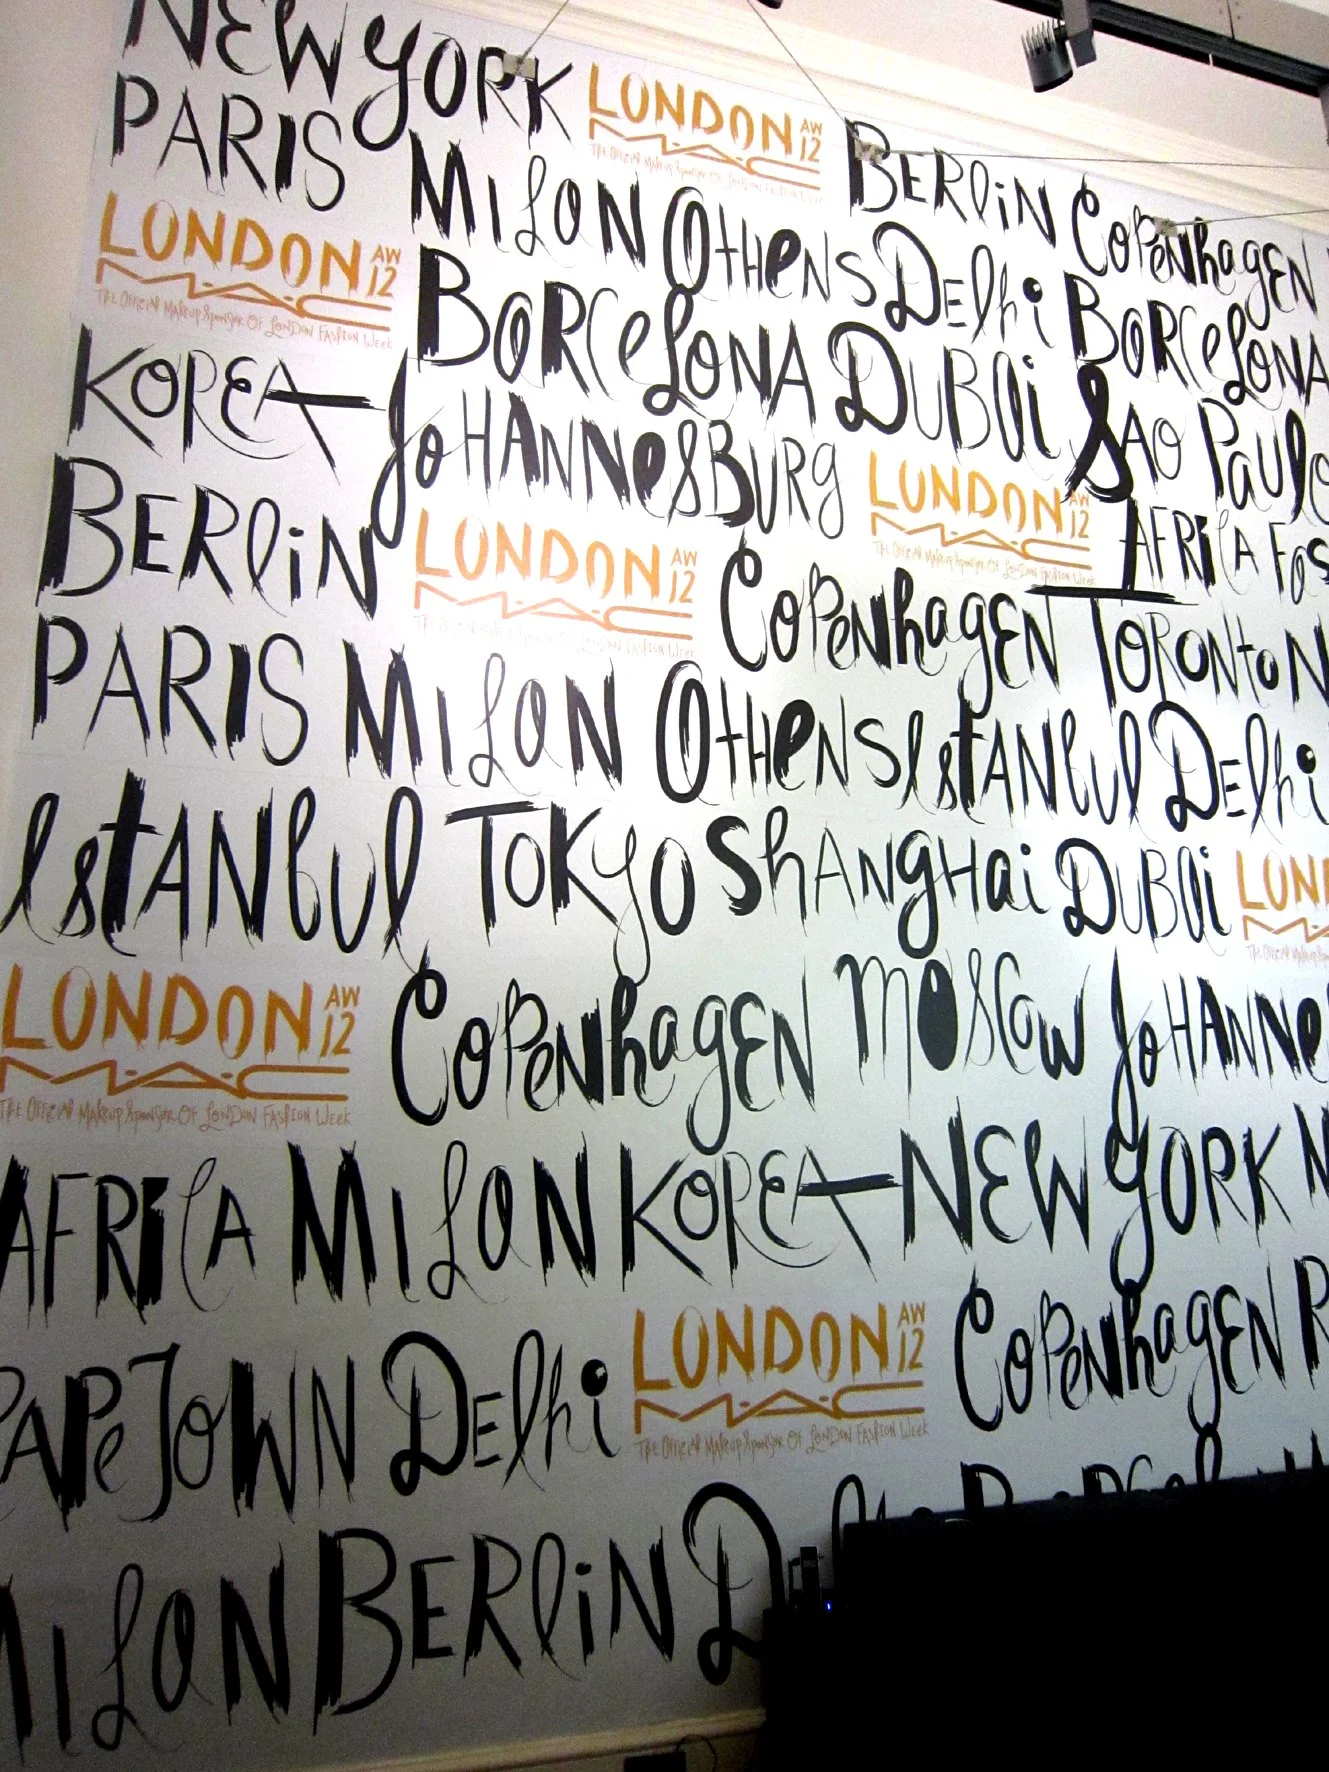 NEW YORK LONDON AW 12
M·A·C
The Official Makeup Sponsor Of London Fashion Week
PARIS MILAN ATHENS BERLIN COPENHAGEN
LONDON AW 12
M·A·C
The Official Makeup Sponsor Of London Fashion Week
BARCELONA DELHI BARCELONA
KOREA JOHANNESBURG DUBAI SAO PAULO
LONDON AW 12
M·A·C
The Official Makeup Sponsor Of London Fashion Week
AFRICA FAS
BERLIN LONDON AW 12
M·A·C
The Official Makeup Sponsor Of London Fashion Week
COPENHAGEN TORONTO
PARIS MILAN ATHENS ISTANBUL DELHI
ISTANBUL TOKYO SHANGHAI DUBAI LON
LONDON AW 12
M·A·C
The Official Makeup Sponsor Of London Fashion Week
COPENHAGEN MOSCOW JOHANNE
AFRICA MILAN KOREA NEW YORK
CAPE TOWN DELHI LONDON AW 12
M·A·C
The Official Makeup Sponsor Of London Fashion Week
COPENHAGEN
MILAN BERLIN D